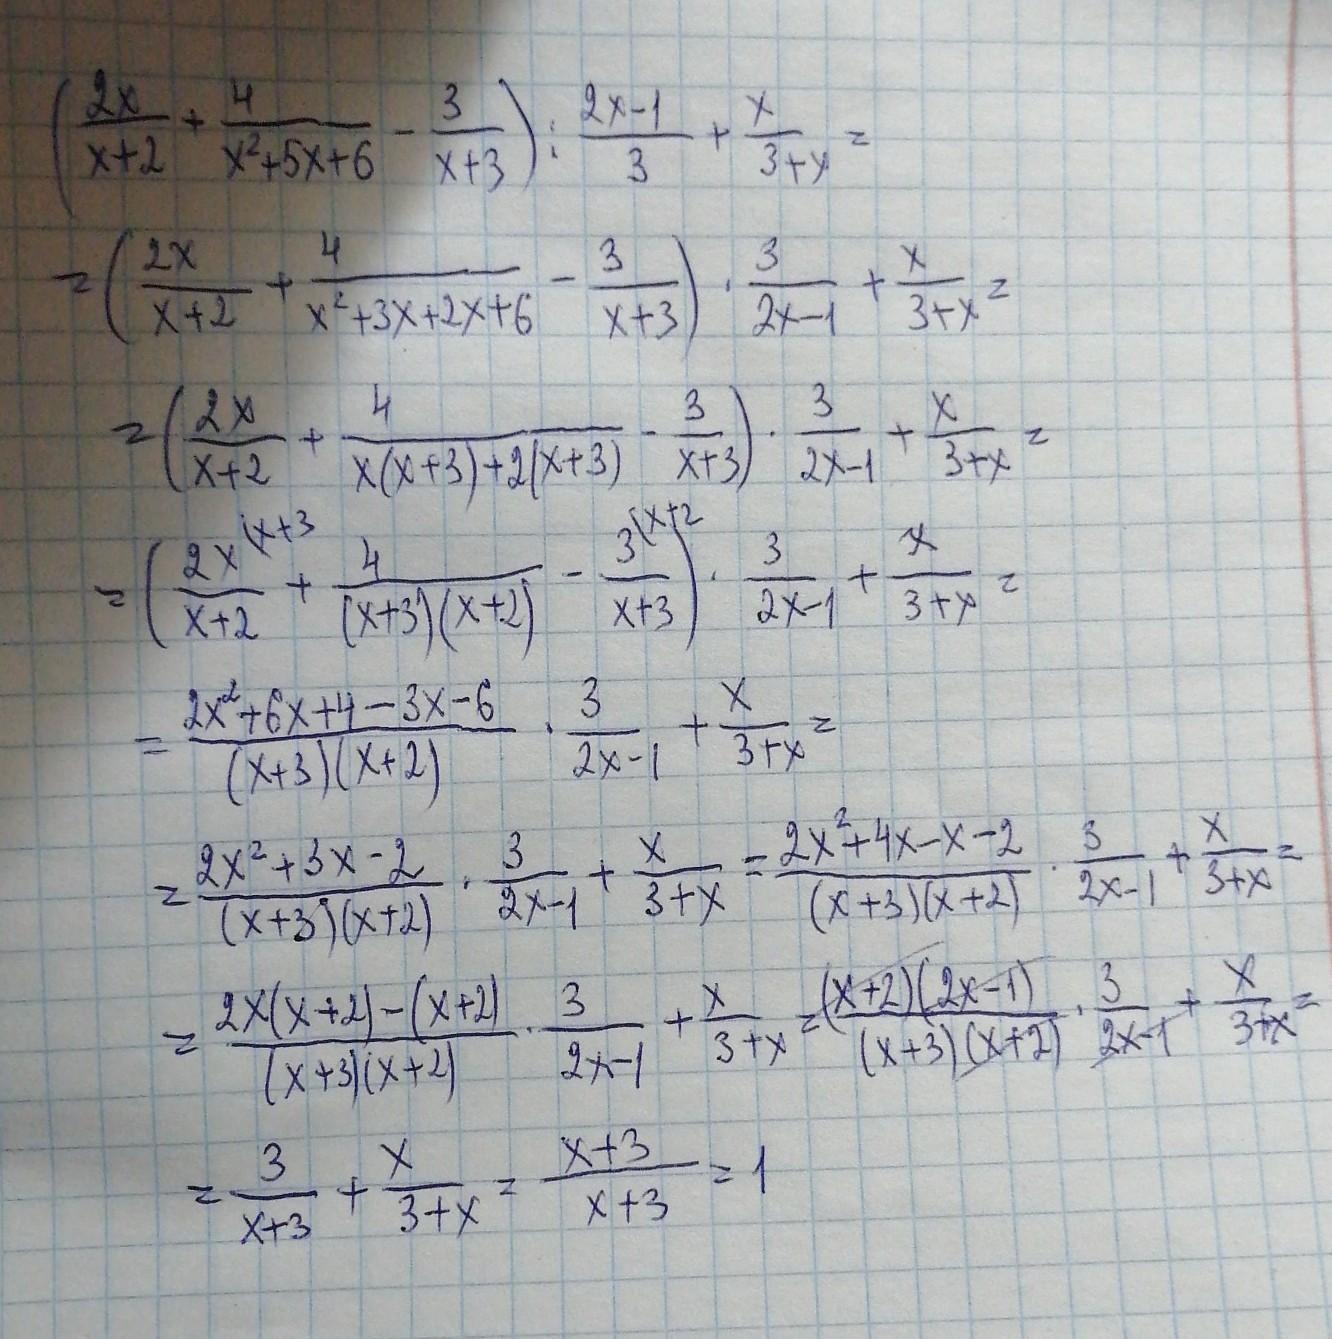 (2x/(x+2) + 4/(x²+5x+6) - 3/(x+3)) : (2x-1)/3 + x/(3+x) =
= (2x/(x+2) + 4/(x²+3x+2x+6) - 3/(x+3)) · 3/(2x-1) + x/(3+x) =
= (2x/(x+2) + 4/(x(x+3)+2(x+3)) - 3/(x+3)) · 3/(2x-1) + x/(3+x) =
= (2x^(x+3/(x+2) + 4/((x+3)(x+2)) - 3^(x+2/(x+3)) · 3/(2x-1) + x/(3+x) =
= (2x²+6x+4-3x-6)/((x+3)(x+2)) · 3/(2x-1) + x/(3+x) =
= (2x²+3x-2)/((x+3)(x+2)) · 3/(2x-1) + x/(3+x) = (2x²+4x-x-2)/((x+3)(x+2)) · 3/(2x-1) + x/(3+x) =
= (2x(x+2)-(x+2))/((x+3)(x+2)) · 3/(2x-1) + x/(3+x) = ((x+2)(2x-1))/((x+3)(x+2)) · 3/(2x-1) + x/(3+x) =
= 3/(x+3) + x/(3+x) = (x+3)/(x+3) = 1